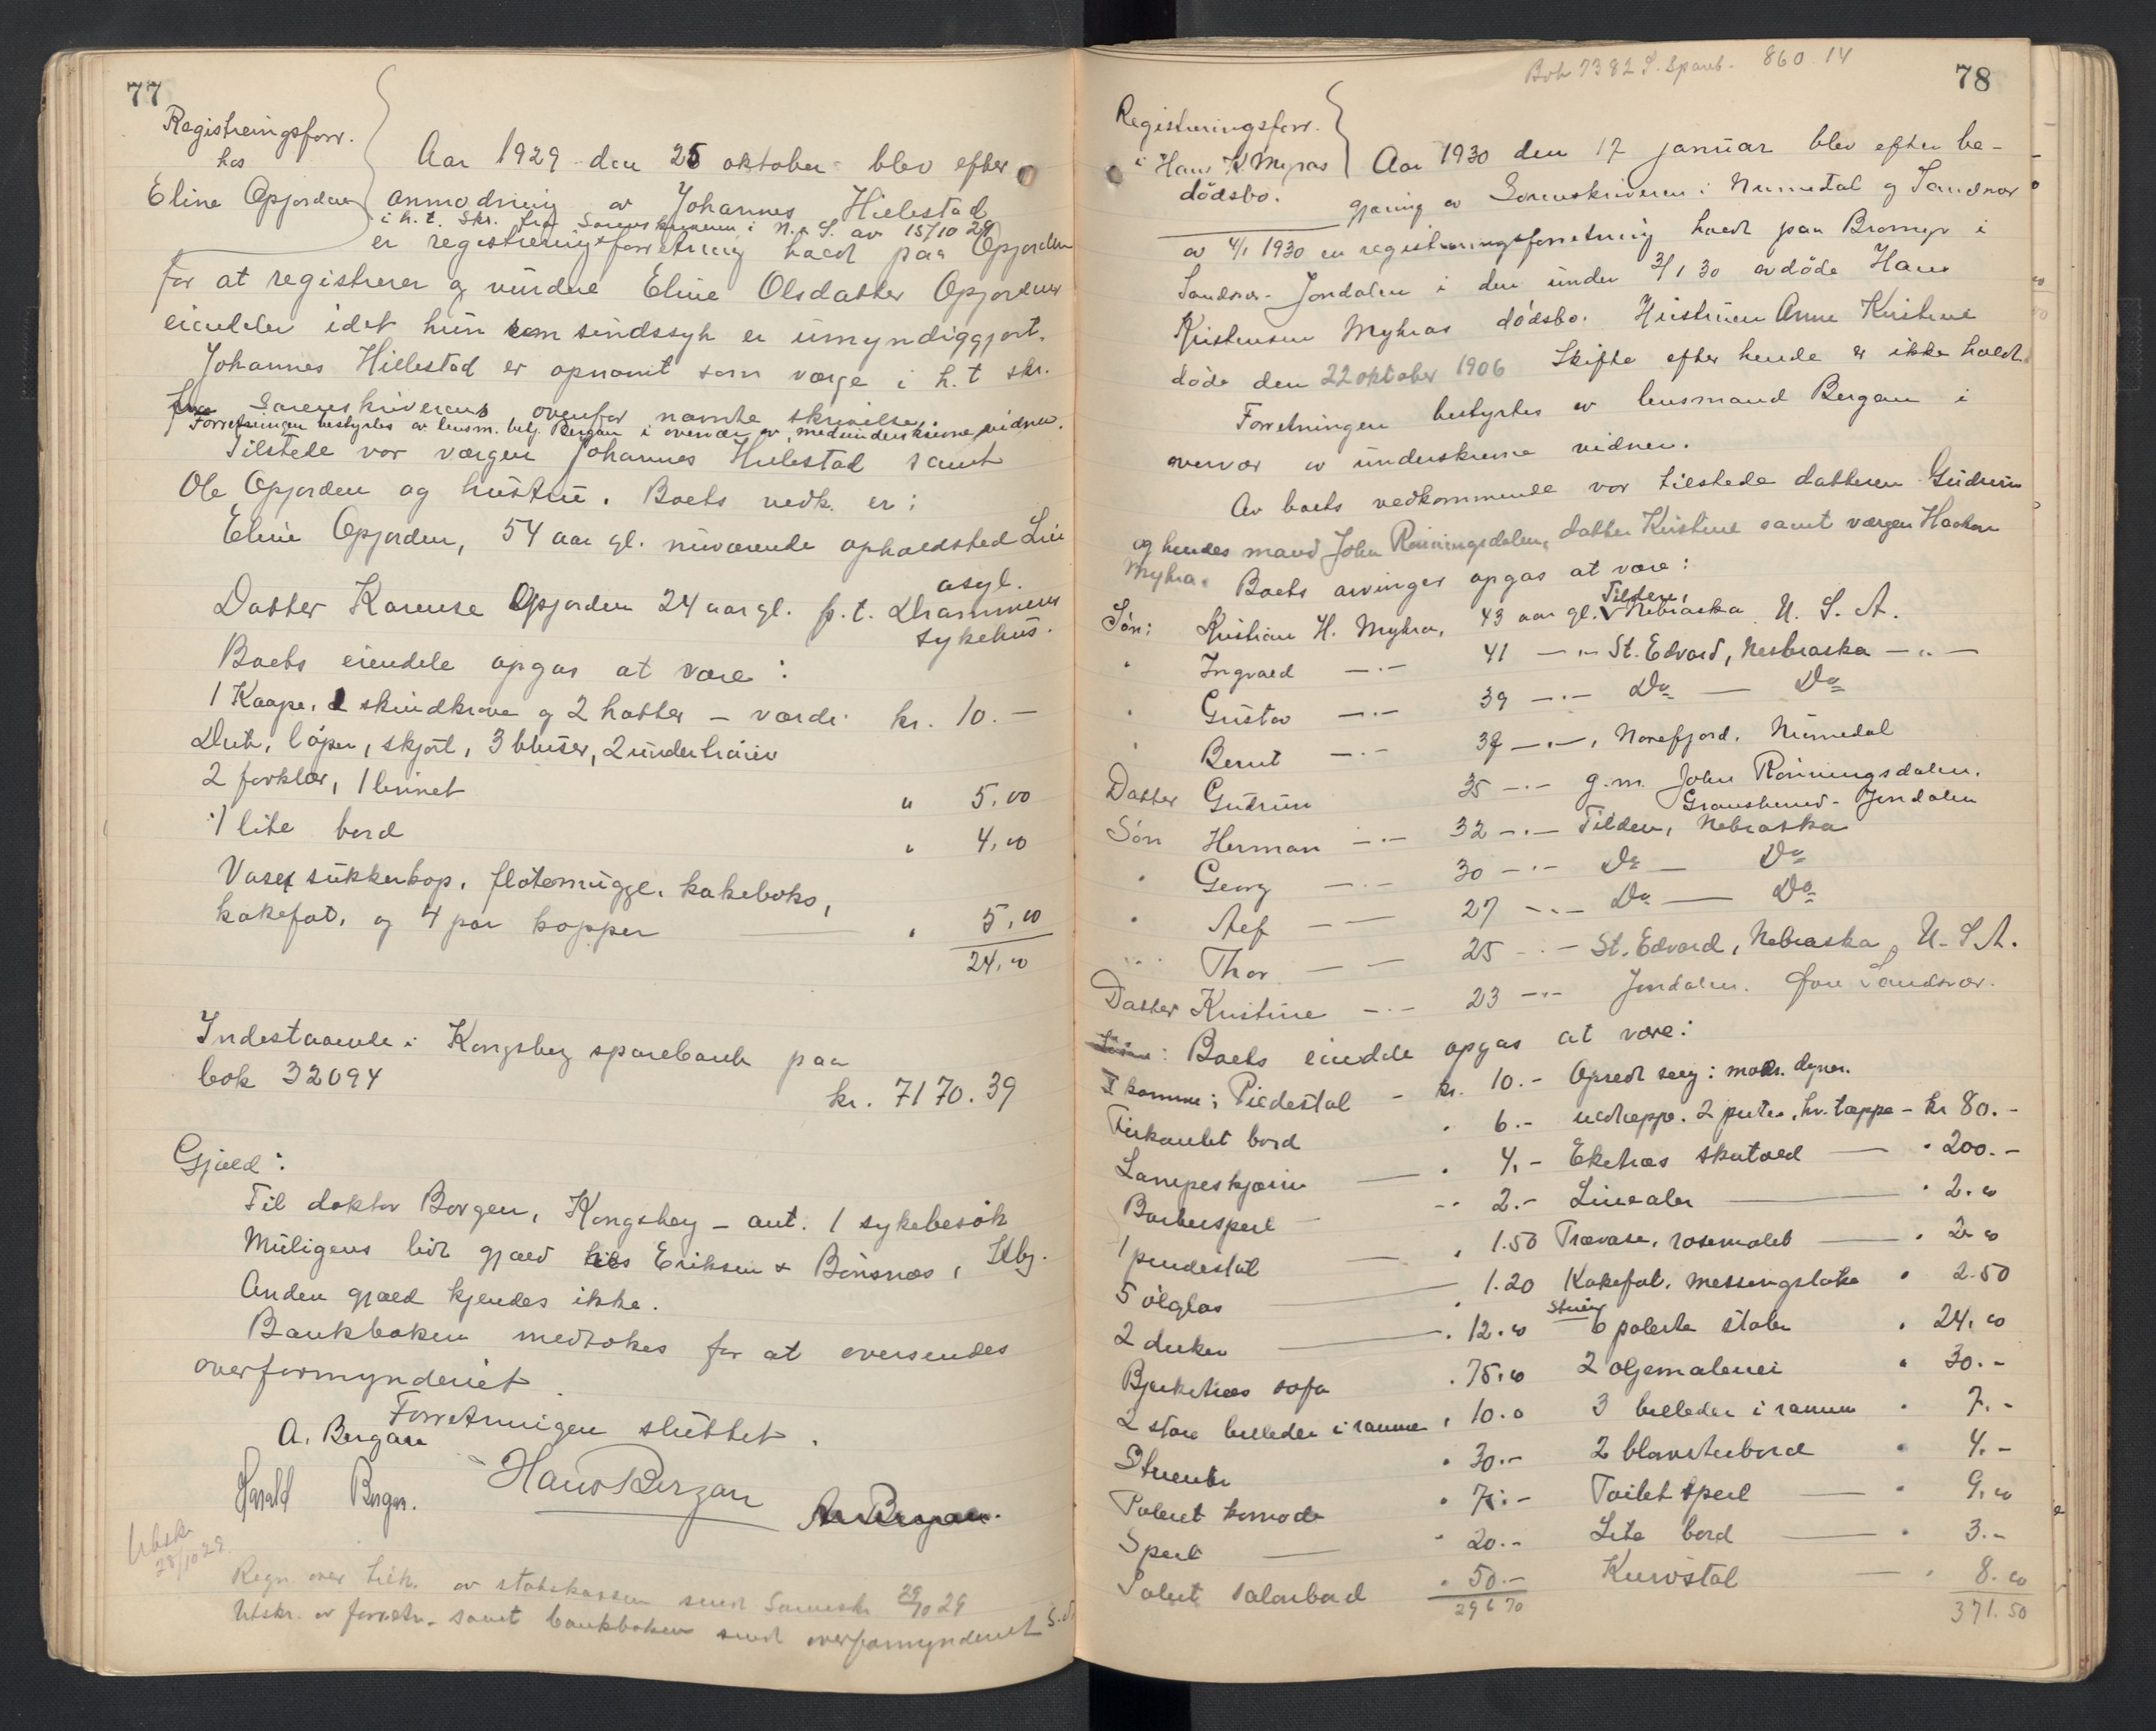 77
Registreringsforr.
hos
Eline Opjorden
Aar 1929 den 25 oktober blev efter
anmodning av Johannes Hillestad
i h. t. Skr. fra Sorenskriveren i N. & S. av 15/10 29
er registreringsforretning holdt paa Opjorden
for at registrere og vurdere Eline Olsdatter Opjordens
eiendeler idet hun som sindssyk er umyndiggjort.
Johannes Hillestad er opnævnt som værge i h. t skr.
fra Sorenskriverens ovenfor nævnte skrivelse.
Forretningen bestyrtes av lensm. betj. Bergan i overvær av medunderskrevne vidner.
Tilstede var værgen Johannes Hillestad samt
Ole Opjorden og hustru. Boets vedk. er:
Eline Opjorden, 54 aar gl. nuværende opholdsted Lier
asyl.
Datter Karense Opjorden 24 aar gl. p. t. Drammens
sykehus.
Boets eiendele opgas at være:
1 Kaape, 1 skindkrave og 2 hatter - værdi kr. 10.-
Duk, løper, skjørt, 3 bluser, 2 undertrøier
2 forklær, 1 linnet " 5.00
1 lite bord " 4.00
Vaser sukkerkop, fløtemugge, kakeboks,
kakefat, og 4 par kopper " 5.00
24.00
Indestaaende i Kongsberg sparebank paa
bok 32094 kr. 7170.39
Gjæld:
Til doktor Borgen, Kongsberg - ant. 1 sykebesøk
Muligens litt gjæld hos Eriksen & Bønsnæs, Kbg.
Anden gjæld kjendes ikke.
Bankboken medtokes for at oversendes
overformynderiet.
Forretningen sluttet.
A. Bergan
Harald Bergan. Hans Bergan
Utskr.
28/10 29.
Regn. over tilk. av statskassen sendt Sorenskr. 29/10 29
Utskr. av forretn. samt bankboken sendt overformynderiet S. d.
Bok 7382 S. Spareb. 860.14
78
Registreringsforr.
i Hans K. Myhras
dødsbo.
Aar 1930 den 17 januar blev efter be-
gjæring av Sorenskriveren i Numedal og Sandsvær
av 4/1 1930 en registreringsforretning holdt paa Bromyr i
Sandsvær-Jondalen i den under 3/1 30 avdøde Hans
Kristensen Myhras dødsbo. Hustruen Anne Kristine
døde den 22 oktober 1906 Skifte efter hende er ikke holdt.
Forretningen bestyrtes av lensmand Bergan i
overvær av underskrevne vidner.
Av boets vedkommende var tilstede datteren Gudrun
og hendes mand John Rønningsdalen, datter Kristine samt værgen Haakon
Myhra. Boets arvinger opgas at være:
Søn: Kristian H. Myhra, 43 aar gl. Tilden, Nebraska U. S. A.
" Ingvald -"- 41 -"- St. Edvard, Nesbraska -"-
" Gustav -"- 39 -"- Do - Do
" Bernt -"- 38 -"-, Norefjord, Numedal
Datter Gudrun 35 -"- g. m. John Rønningsdalen.
Gransherred-Jondalen
Søn Herman -"- 32 -"- Tilden, Nebraska
" Georg -"- 30 -"- Do - Do
" Alf - - 27 -"- Do - Do
" Thor - - 25 -"- St. Edvard, Nebraska, U. S. A.
Datter Kristine -"- 23 -"- Jondalen. Øvre Sandsvær.
Boets eiendele opgas at være:
I kamme: Piedestal - kr. 10.- Opredt seng: madr. dyner.
Firkantet bord " 6.- uldteppe. 2 puter, hv. tæppe - kr 80.-
Lampeskjærm - " 4.- Eketræs skatoll - " 200.-
Barberspeil - " 2.- Linealer - " 2.00
1 pindestol - " 1.50 Trævase, rosemalet - " 2.00
5 ølglas - " 1.20 Kakefat, messingstake " 2.50
2 duker - " 12.00 Stue 6 polerte stoler " 24.00
Bjerketræs sofa " 75.00 2 oljemalerier " 30.-
2 store billeder i ramme " 10.0 3 billeder i ramme " 7.-
Stueur " 30.- 2 blomsterbord " 4.-
Polert komode " 75.- Toilet speil - " 9.00
Speil - " 20.- Lite bord - " 3.-
Polert salonbord " 50.- Kurvstol - " 8.00
296 70 371.50